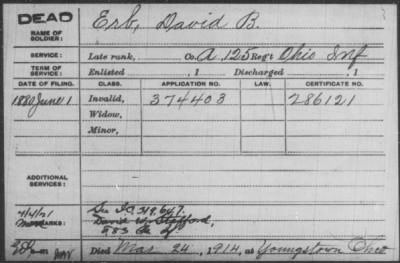 DEAD
Erb, David B.
NAME OF SOLDIER:
SERVICE: Late rank, Co. A, 125 Reg't Ohio Inf
TERM OF SERVICE: Enlisted , 1 Discharged , 1
DATE OF FILING. CLASS. APPLICATION NO. LAW. CERTIFICATE NO.
1880 June 1 Invalid, 374403 286121
Widow,
Minor,
ADDITIONAL SERVICES:
4/4/21 See I.C. 319,647.
REMARKS: David W. Stafford,
Died Mar 24, 1914, at Youngstown Ohio